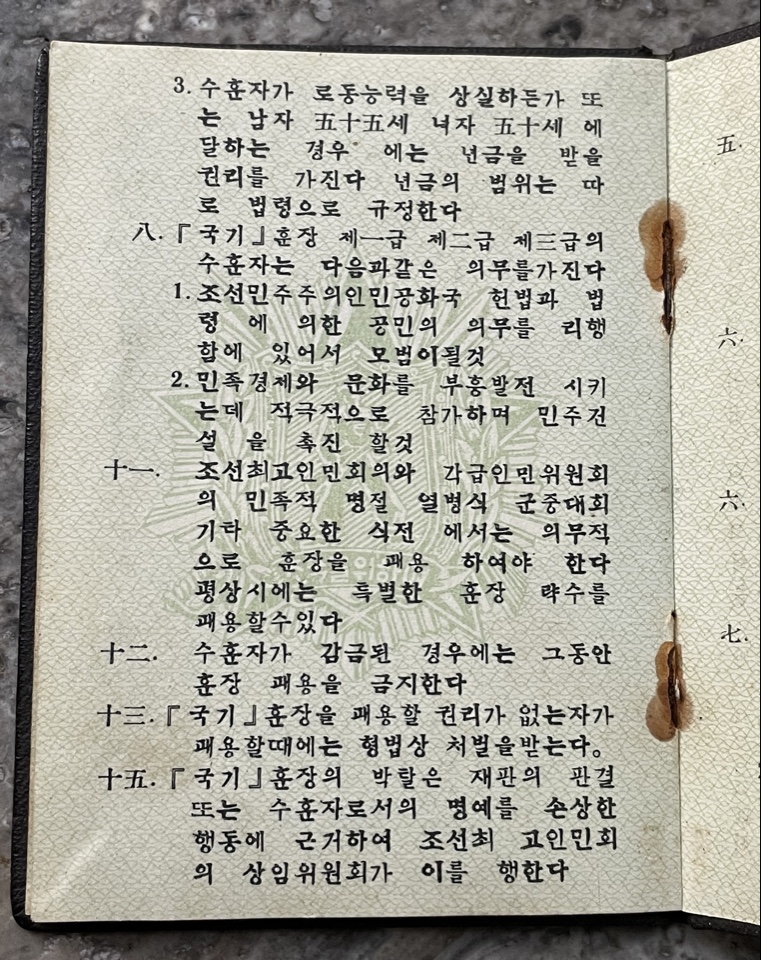 3. 수훈자가 로동능력을 상실하든가 또
는 남자 五十五세 녀자 五十세 에
달하는 경우 에는 년금을 받을
권리를 가진다 년금의 범위는 따
로 법령으로 규정한다
八.『국기』훈장 제一급 제二급 제三급의
수훈자는 다음과같은 의무를가진다
1. 조선민주주의인민공화국 헌법과 법
령 에 의한 공민의 의무를 리행
함에 있어서 모범이될것
2. 민족경제와 문화를 부흥발전 시키
는데 적극적으로 참가하며 민주건
설 을 촉진 할것
十一. 조선최고인민회의와 각급인민위원회
의 민족적 명절 열병식 군중대회
기타 중요한 식전 에서는 의무적
으로 훈장을 패용 하여야 한다
평상시에는 특별한 훈장 략수를
패용할수있다
十二. 수훈자가 감금된 경우에는 그동안
훈장 패용을 금지한다
十三.『국기』훈장을 패용할 권리가 없는자가
패용할때에는 형법상 처벌을받는다。
十五.『국기』훈장의 박탈은 재판의 판결
또는 수훈자로서의 명예를 손상한
행동에 근거하여 조선최 고인민회
의 상임위원회가 이를 행한다
五.
六.
六.
七.